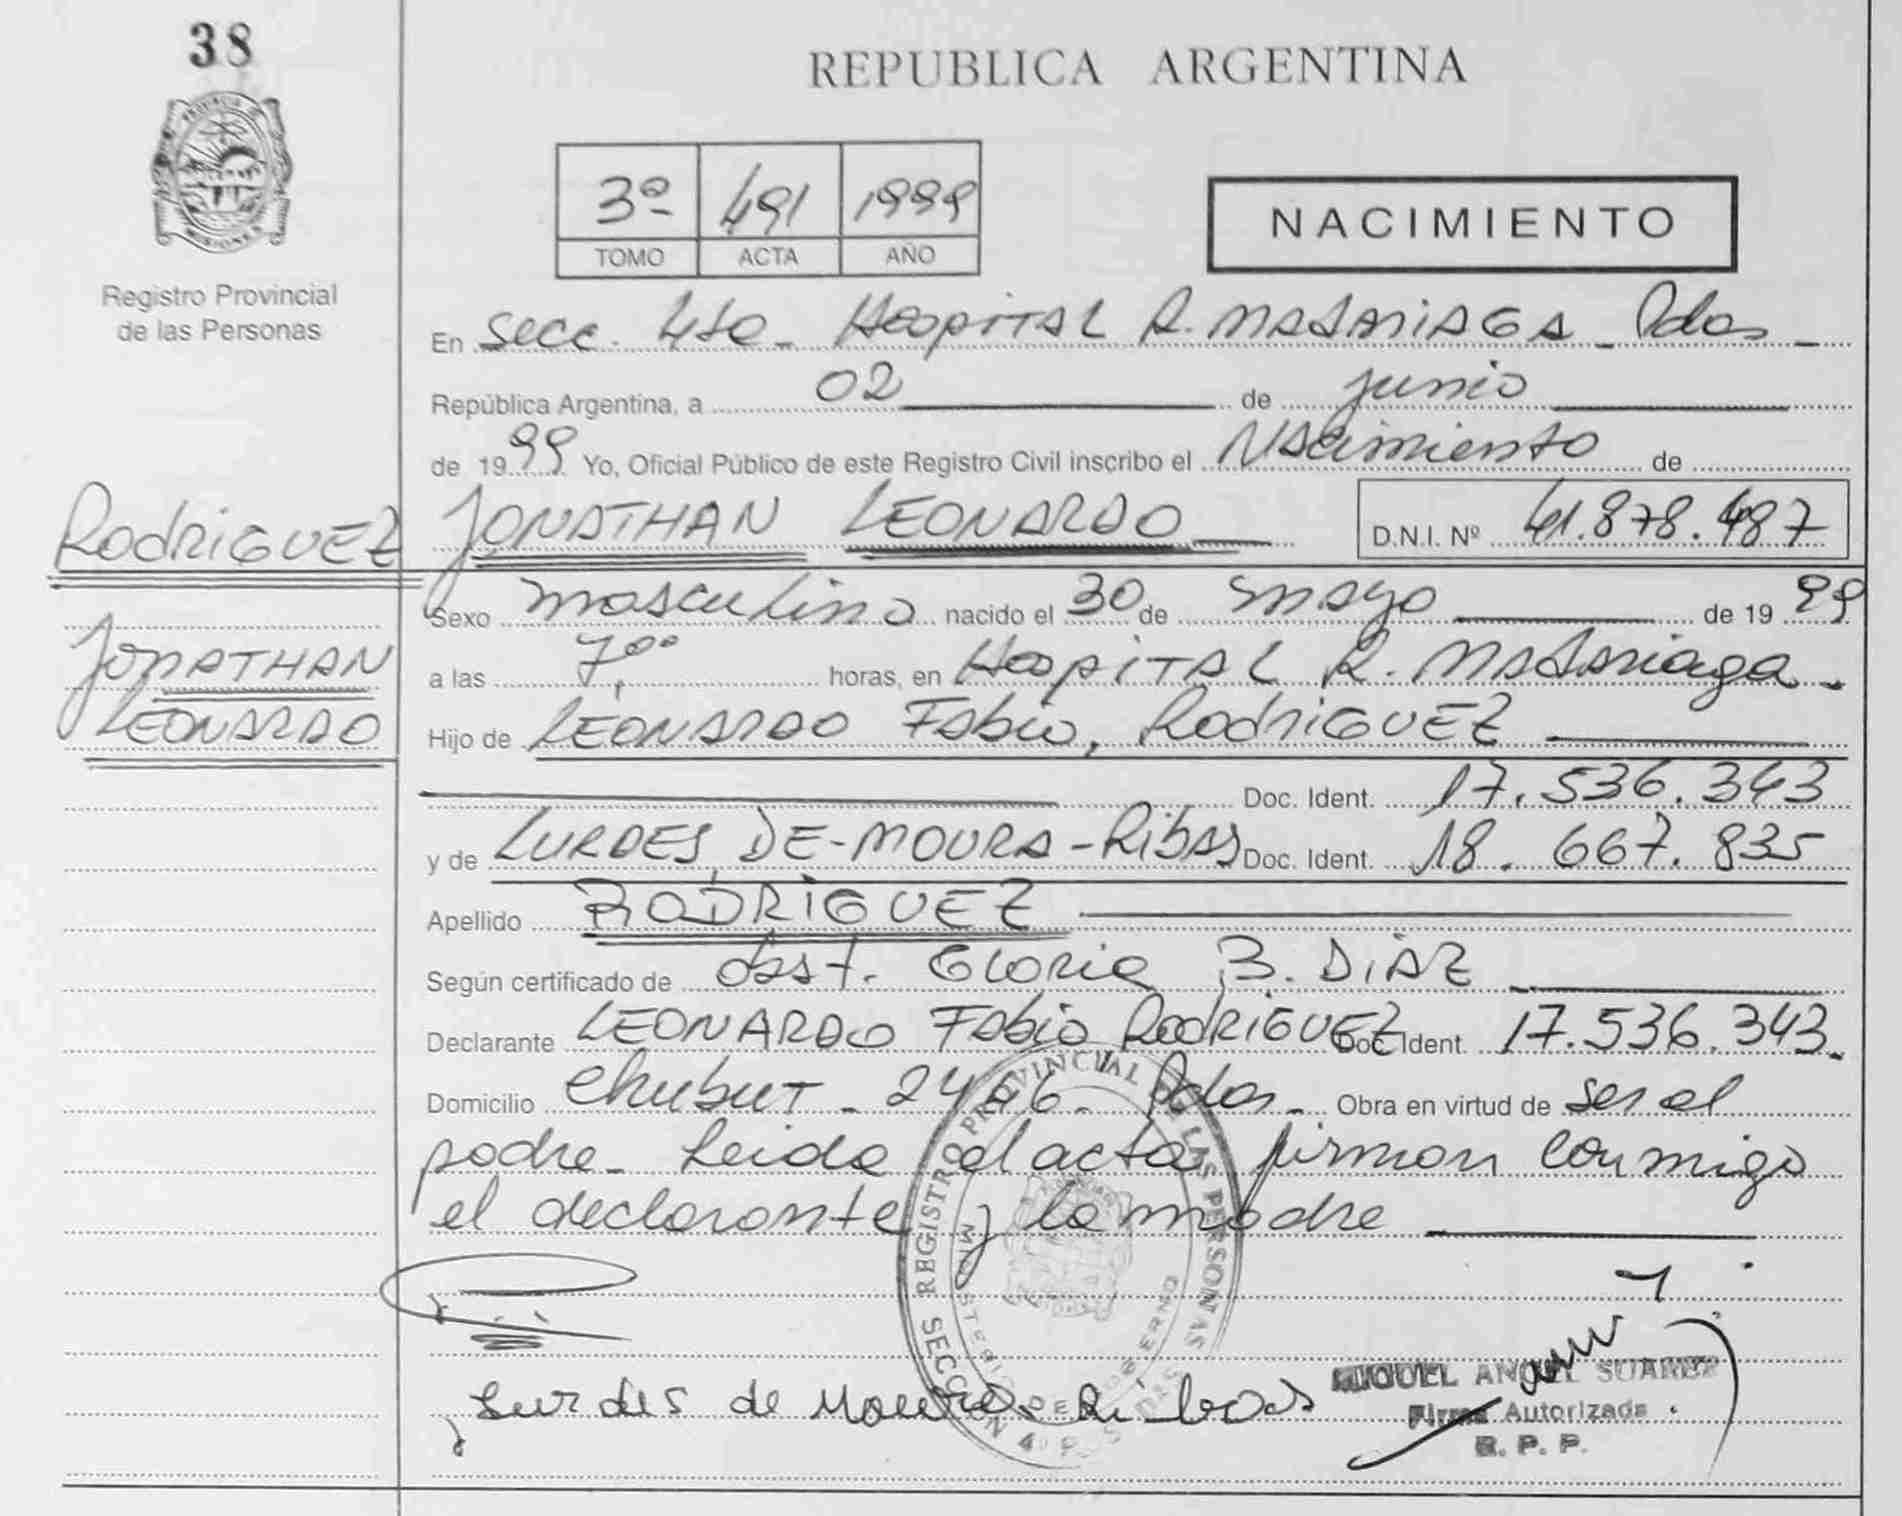 38
PROVINCIA DE
MISIONES
Registro Provincial
de las Personas
REPUBLICA ARGENTINA
3º 491 1999
TOMO ACTA AÑO
NACIMIENTO
En Secc. 4ta_ Hospital R. MADARIAGA_ Pdas_
República Argentina, a 02 de junio
de 1999 Yo, Oficial Público de este Registro Civil inscribo el Nacimiento de
RodRiGUEZ JONATHAN LEONARDO D.N.I. Nº 41.878.487
Sexo masculino nacido el 30 de mayo de 1999
JONATHAN
LEONARDO
a las 7,00 horas, en Hospital R. Madariaga_
Hijo de LEONARDO Fabio, RodRiGUEZ
Doc. Ident. 17.536.343
y de LURDES, DE-MOURA-Ribas Doc. Ident. 18.667.835
Apellido RODRiGUEZ
Según certificado de Obst. Gloria B. DiAZ
Declarante LEONARDO Fabio RodRiGUEZ Doc. Ident. 17.536.343_
Domicilio Chubut_ 2466_ Pdas_ Obra en virtud de ser el
padre_ Leida el acta, firman conmigo
el declarante y la madre
REGISTRO PROVINCIAL DE LAS PERSONAS
MINISTERIO DE GOBIERNO
SECCION 4º
Lurdes de Moura Ribas
MIGUEL ANGEL SUAREZ
Firma Autorizada
R. P. P.